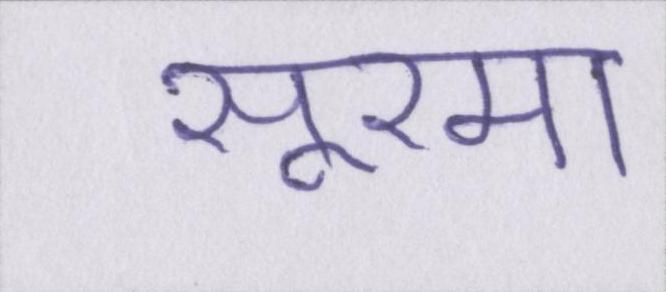 सूरमा